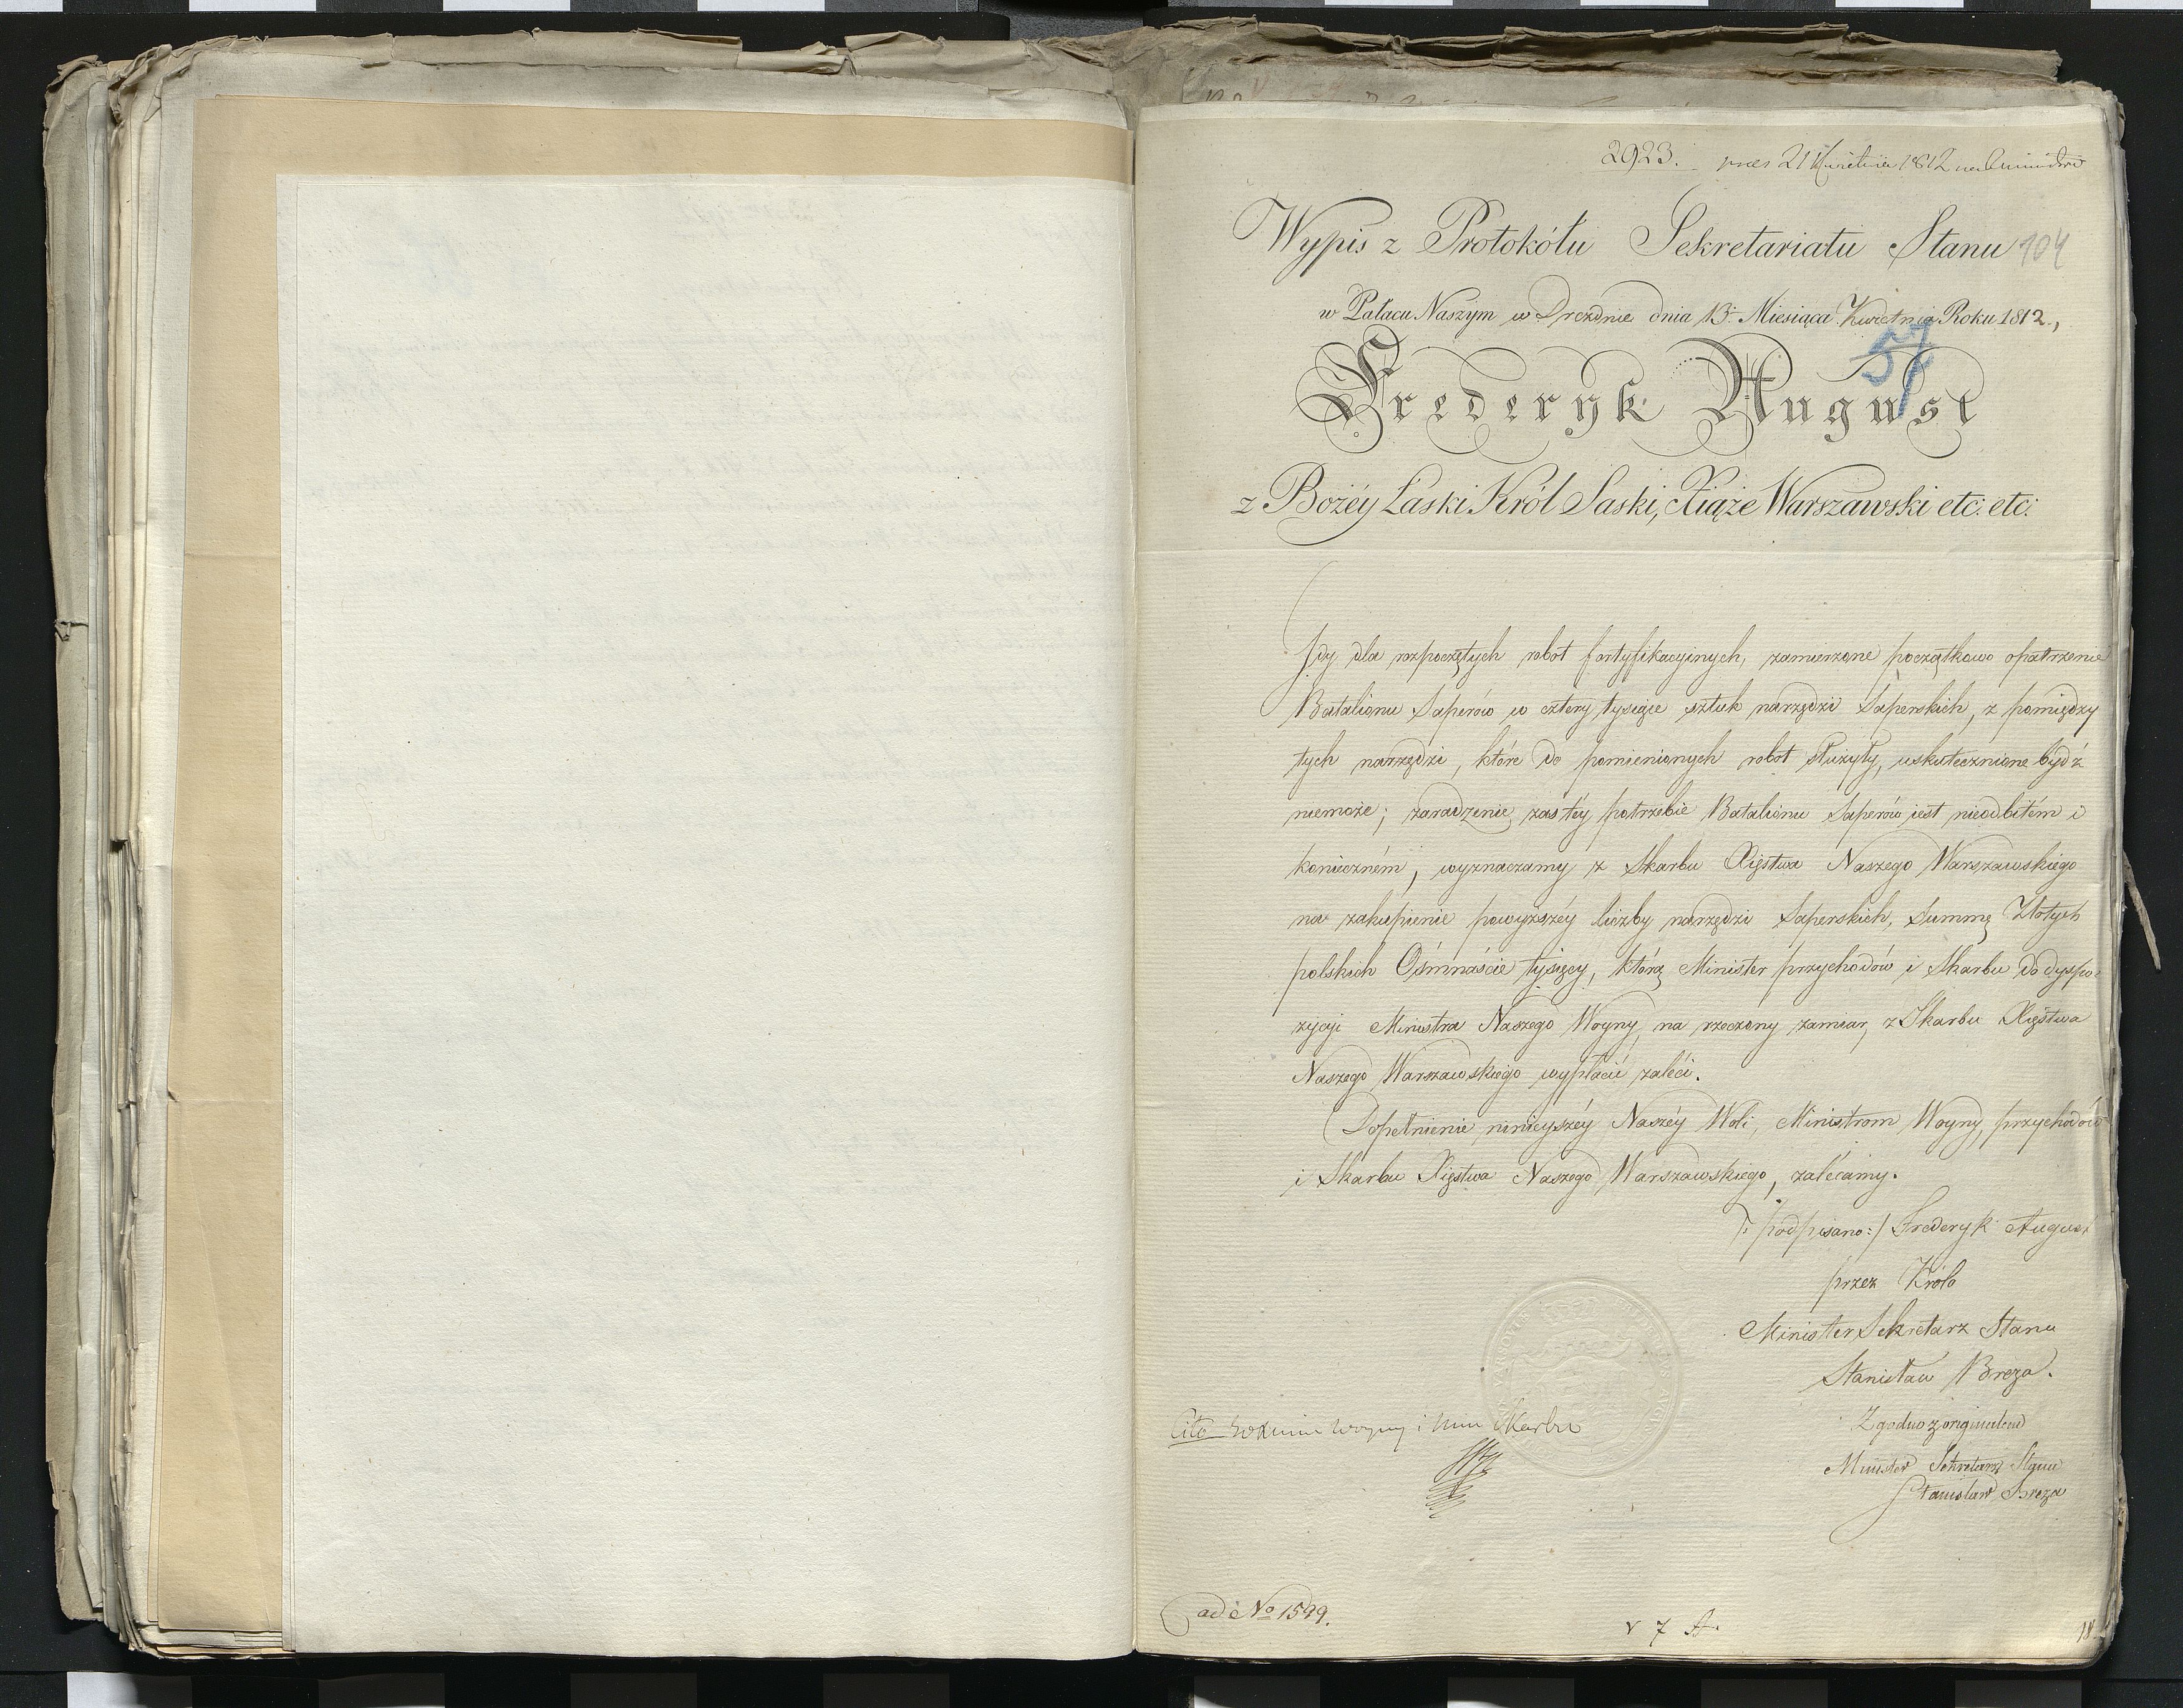 2923. 21 Kwietnia 1812
Wypis z Protokółu Sekretariatu Stanu 104
w Pałacu Naszym w Dreźdnie dnia 13. Miesiąca Kwietnia Roku 1812.,
57
Frederyk August
z Bożéy Łaski Król Saski, Xiąże Warszawski etc: etc:
Gdy dla rozpoczętych robot fortyfikacyinych, zamierzone początkowo opatrzenie
Batalionu Saperów w cztery tysiące sztuk narzędzi Saperskich, z pomiędzy
tych narzędzi, które do pomienionych robot służyły, uskutecznione bydź
niemoże; zaradzenie zaś téy potrzebie Batalionu Saperów iest nieodbitém i
konieczném, wyznaczamy z Skarbu Xięstwa Naszego Warszawskiego
na zakupienie powyższéy liczby narzędzi Saperskich, Summę Złotych
polskich Ośmnaście tysięcy, którą Minister przychodów i Skarbu do dyspo-
zycyi Ministra Naszego Woyny, na rzeczony zamiar, z Skarbu Xięstwa
Naszego Warszawskiego wypłacić zaleci.
Dopełnienie ninieyszéy Naszéy Woli, Ministrom Woyny, przychodów
i Skarbu Xięstwa Naszego Warszawskiego, zalécamy.
/: podpisano :/ Frederyk August
przez Króla
Minister Sekretarz Stanu
Stanisław Breza.
Zgodno z originałem
Cito Woyny i Skarbu
Minister Sekretarz Stanu
Stanisław Breza
ad No 1599.
v 7 A.
18